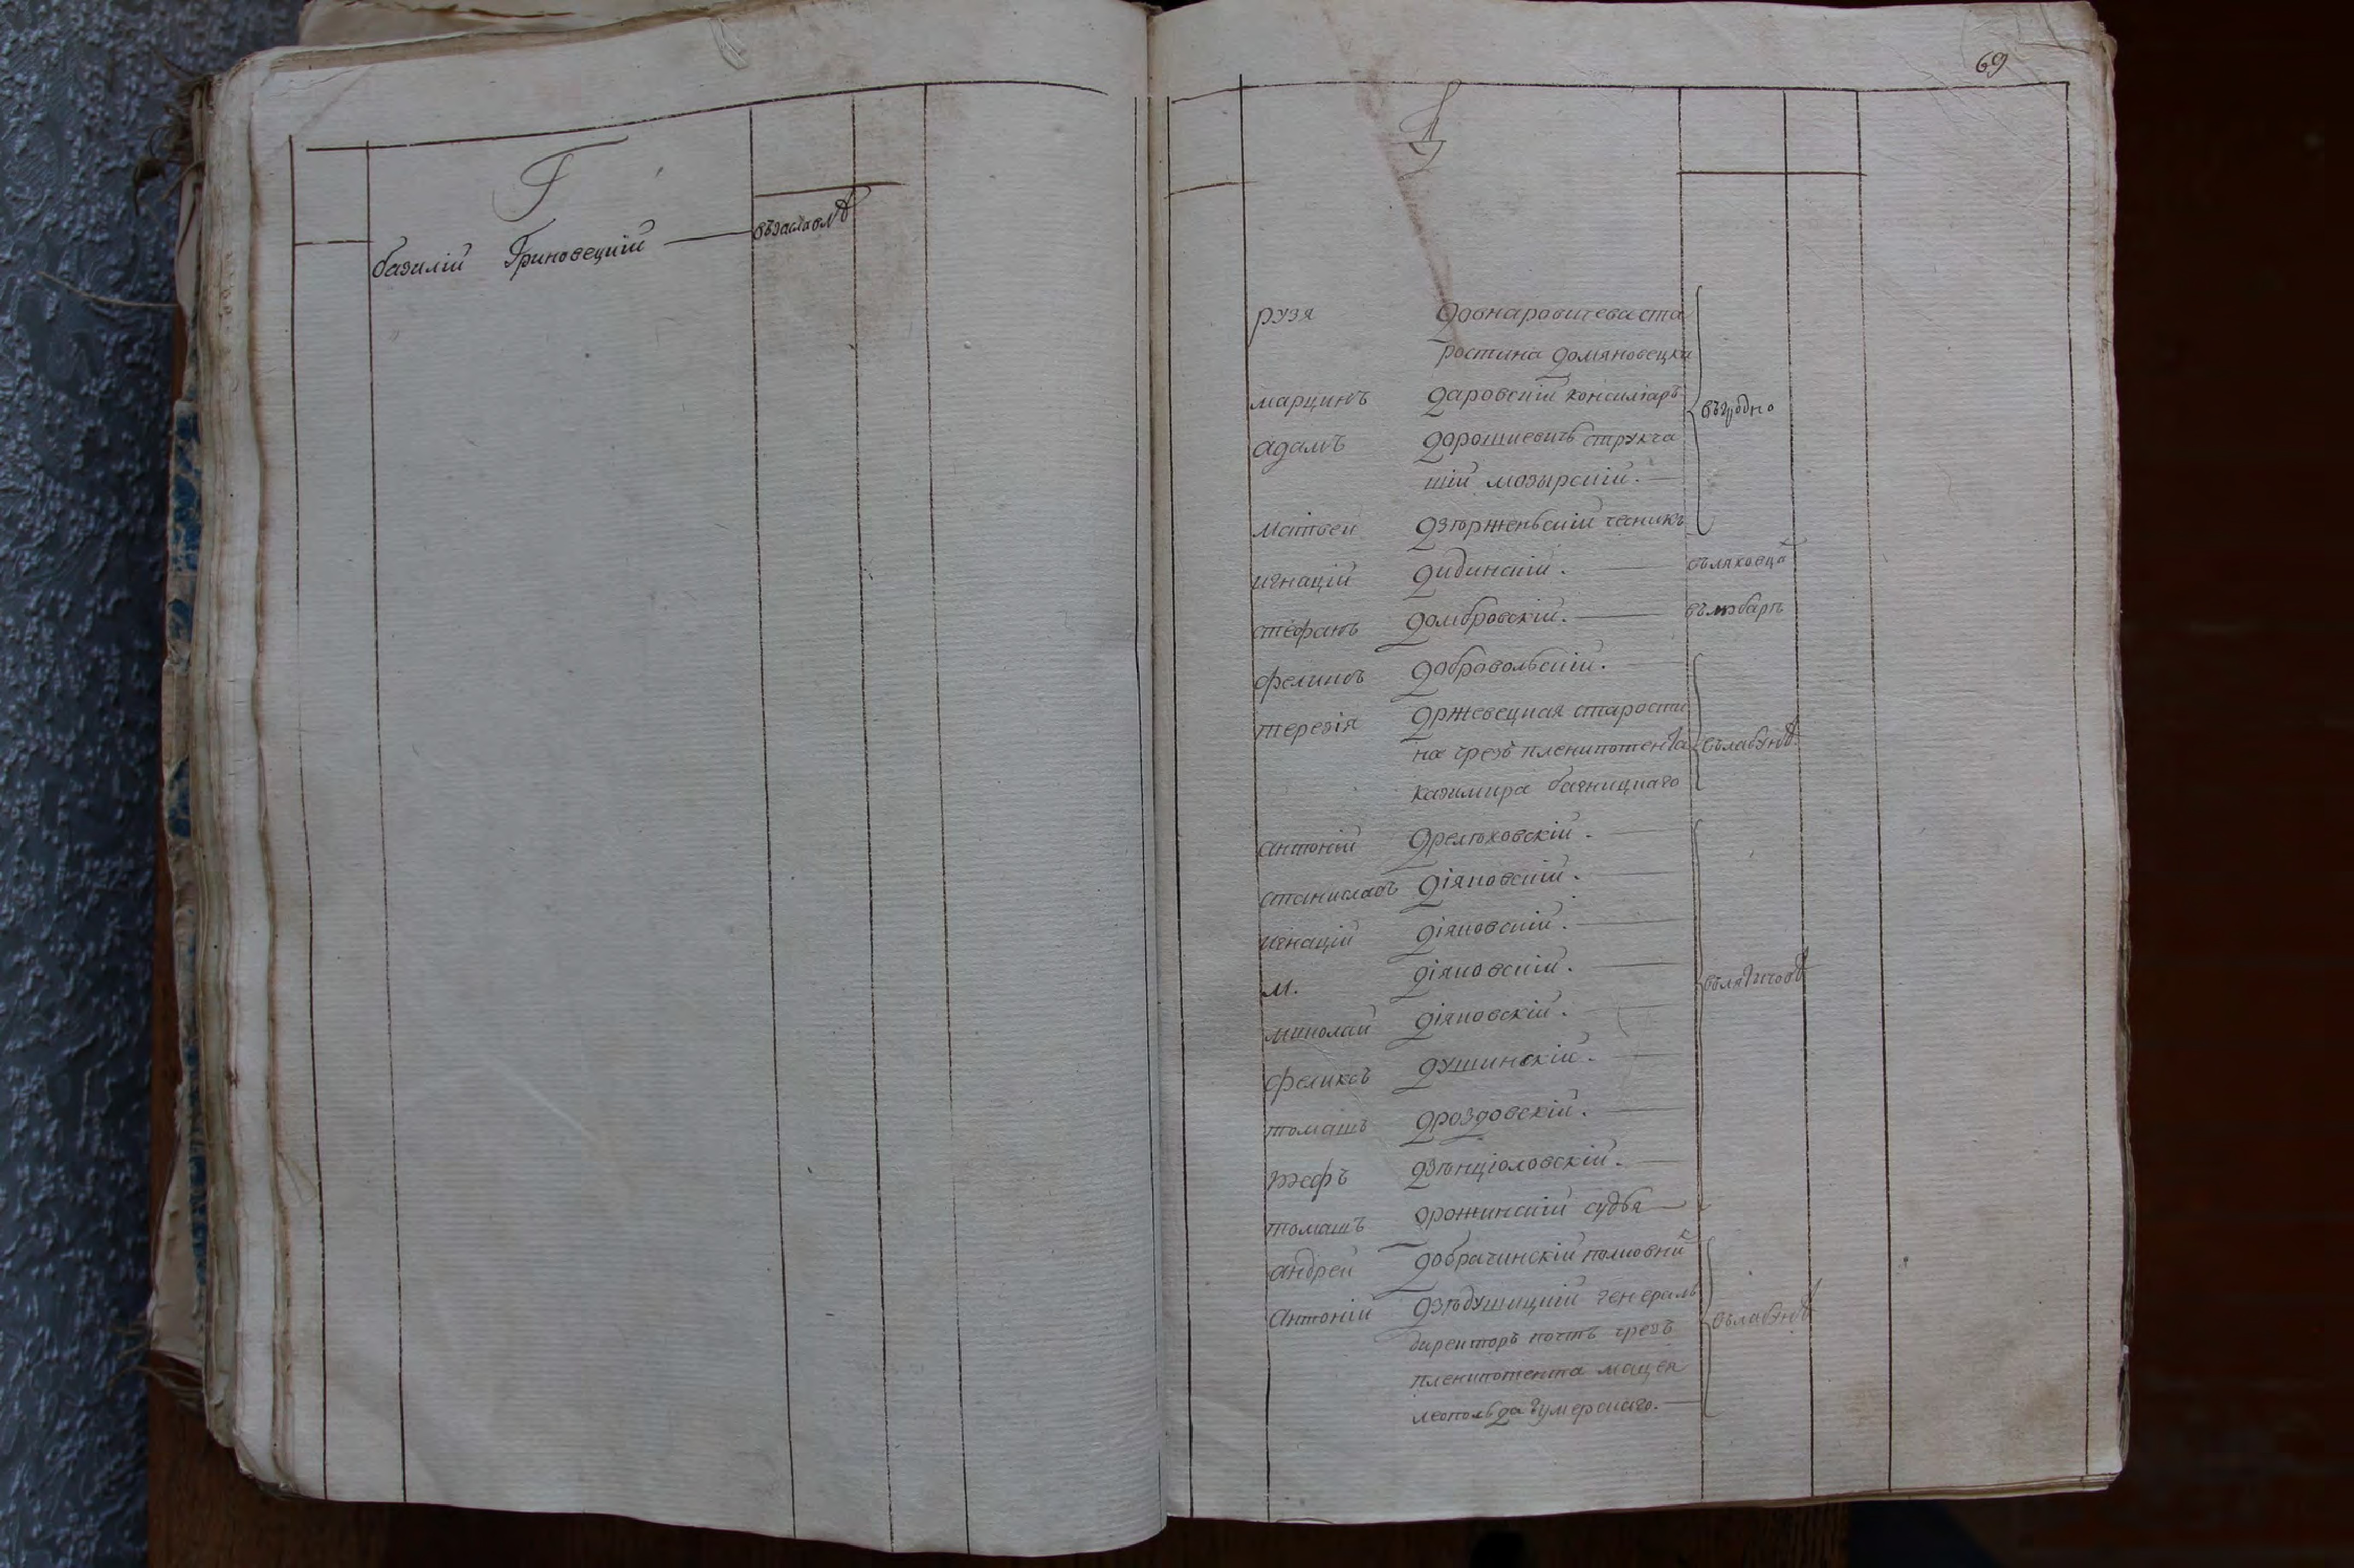 Г
базилій Гриновецкій — въ заславлѣ
69
Д
рузя Довнаровичева ста
ростина домяновецка
марцинъ Даровскій консиліаръ
въ гродно
адамъ Дорошкевичъ струкча
шій мозырскій. —
матвеи Дзѣржинскій чесникъ
игнацій Дидинскій. — въ ляховцѣ
стефанъ Домбровскій. — въ любарѣ
феликсъ Добровольскій. —
терезія Држевецкая старости
на чрезъ пленипотента въ лабунѣ
казимира багницкаго
антоній Дрелюховскій. —
станиславъ Діяковскій. —
игнацій Діяковскій. —
м. Діяковскій. — въ лятичовѣ
миколай Діяковскій. —
феликсъ Душинскій. —
томашъ Дроздовскій. —
юзефъ Дзѣнціоловскій. —
томашъ Дрожинскій судья —
андреи Добрачинскій полковник
Антоній Дзѣдушицкій генералъ
въ лабунѣ
директоръ почтъ чрезъ
пленипотента мацея
леопольда гумерскаго. —